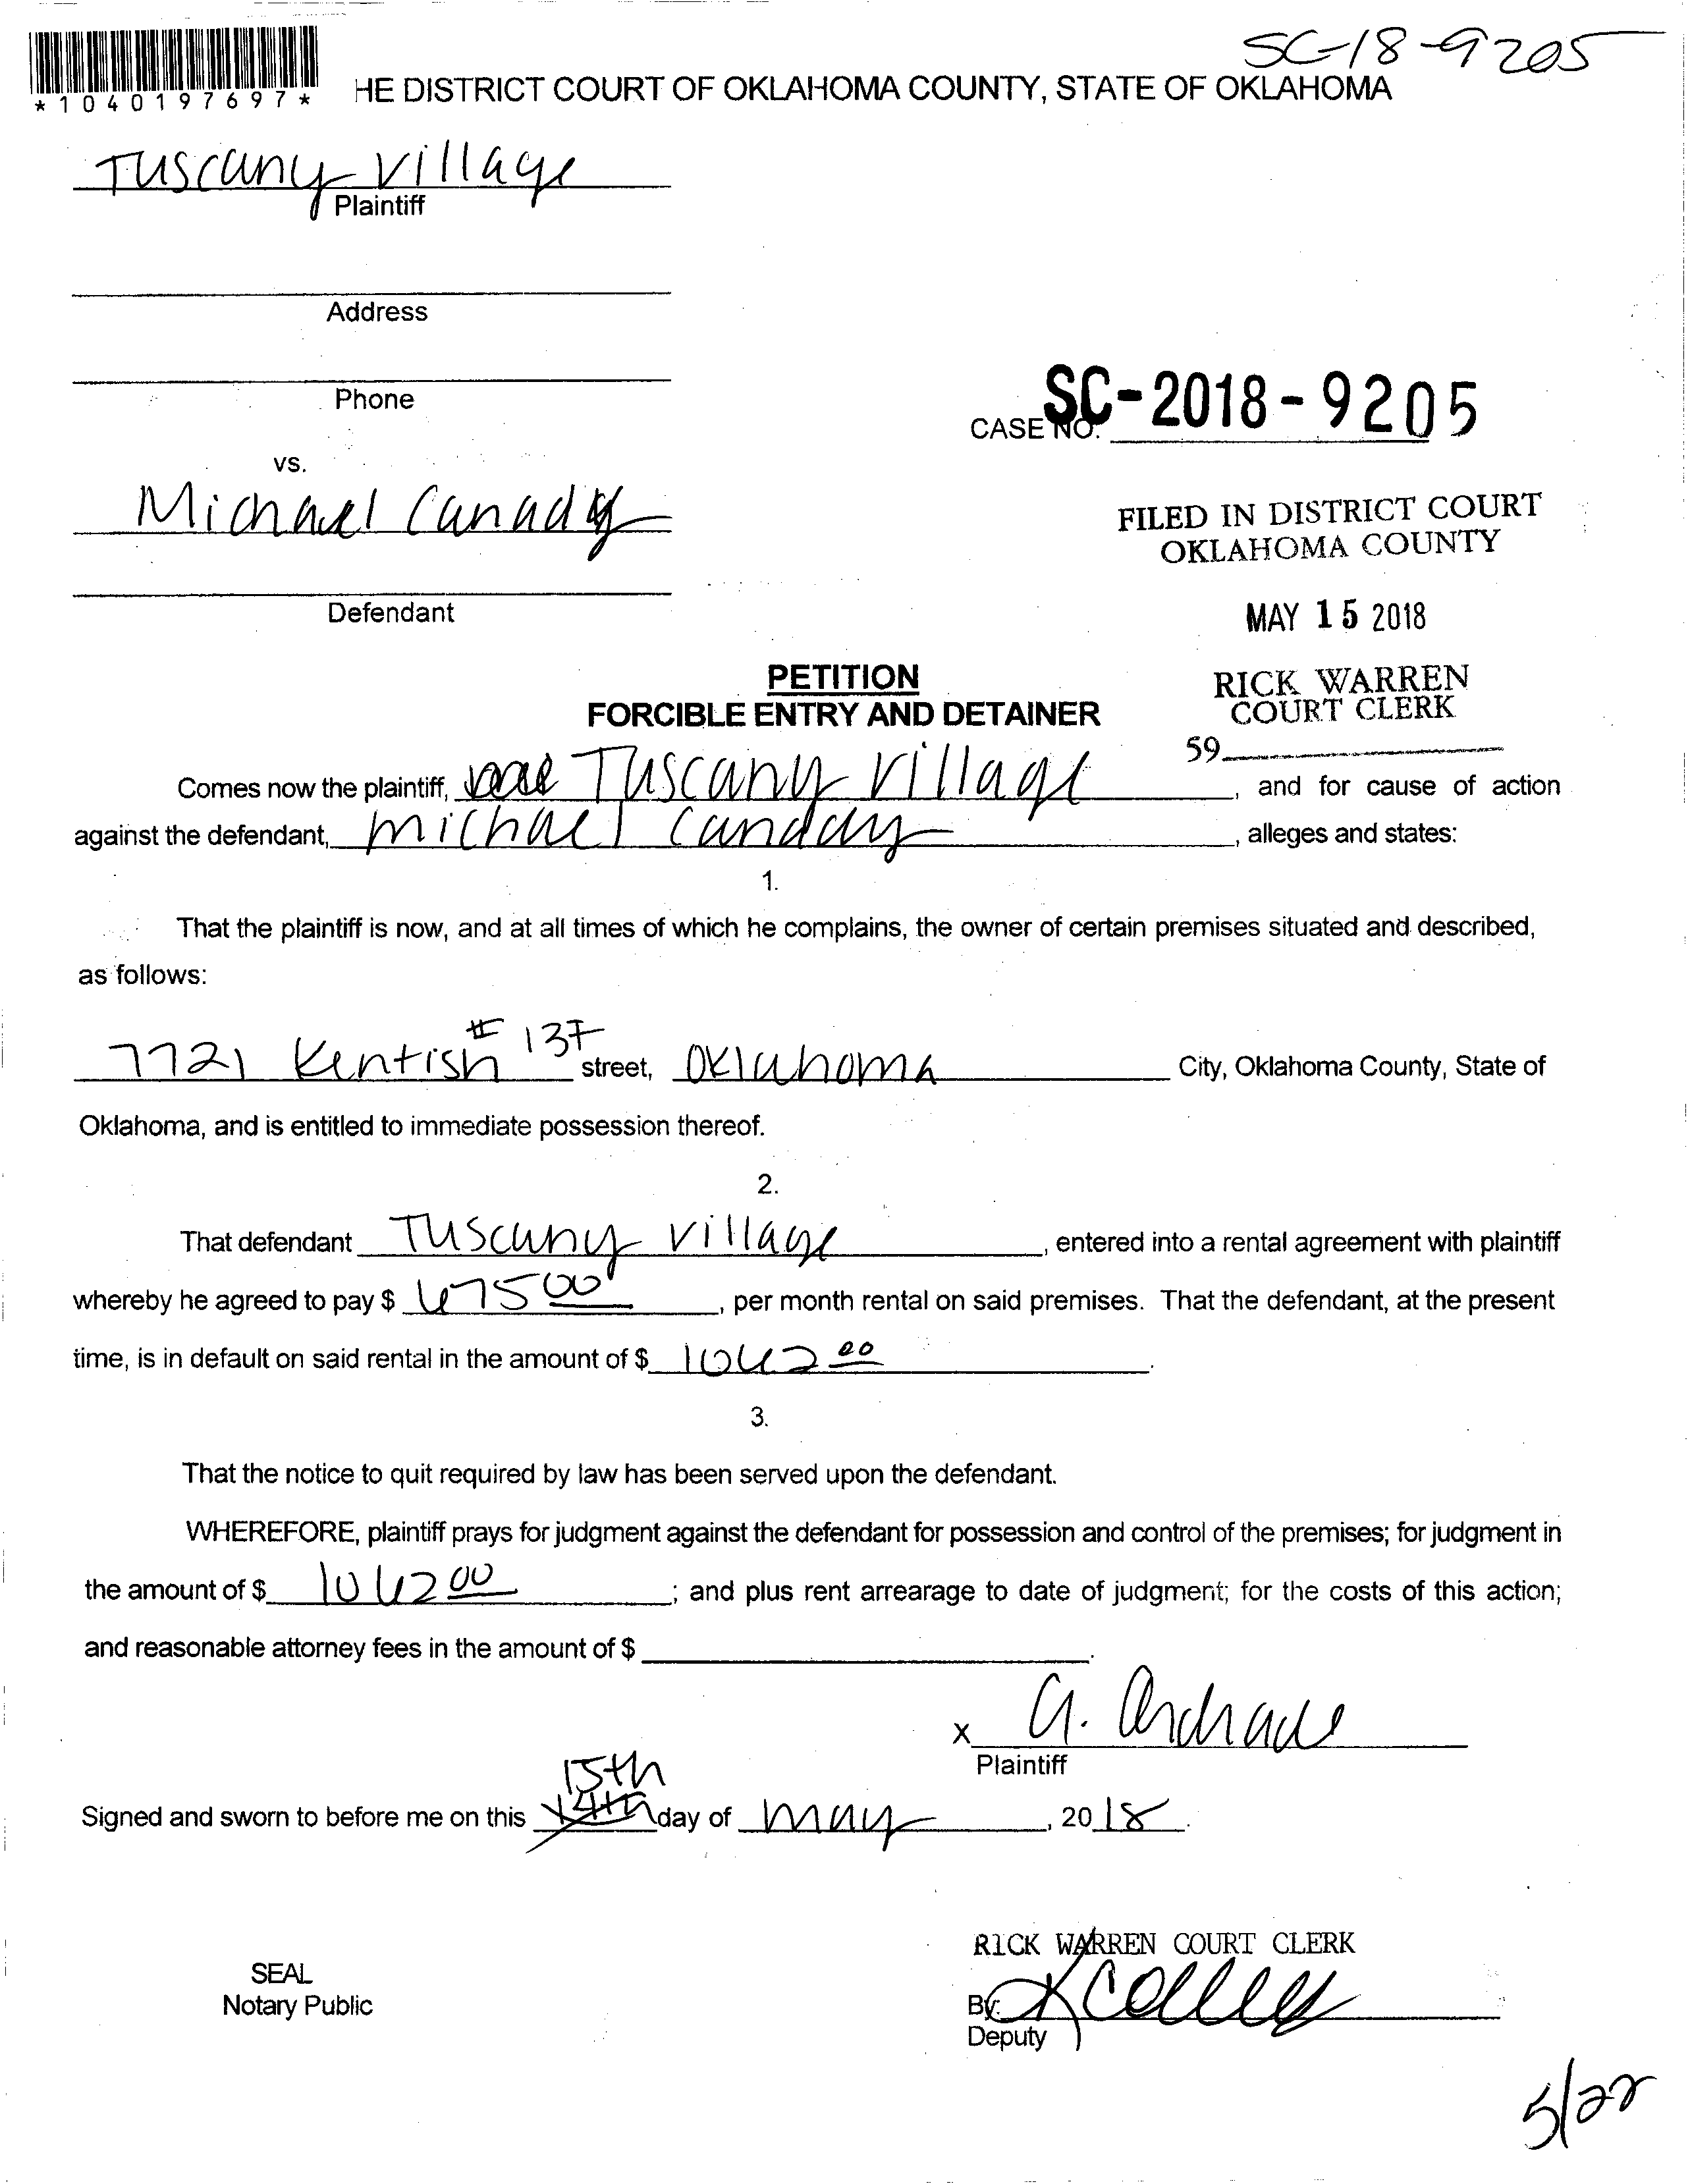 SC-18-9205
*1040197697*
HE DISTRICT COURT OF OKLAHOMA COUNTY, STATE OF OKLAHOMA
Tuscany Village
Plaintiff
Address
Phone
CASE NO. SC-2018-9205
vs.
Michael Canady
FILED IN DISTRICT COURT
OKLAHOMA COUNTY
Defendant
MAY 15 2018
PETITION
RICK WARREN
FORCIBLE ENTRY AND DETAINER
COURT CLERK
59
Comes now the plaintiff, Tuscany Village, and for cause of action
against the defendant, Michael Canday, alleges and states:
1.
That the plaintiff is now, and at all times of which he complains, the owner of certain premises situated and described,
as follows:
7721 Kentish # 137 street, Oklahoma City, Oklahoma County, State of
Oklahoma, and is entitled to immediate possession thereof.
2.
That defendant Tuscany Village, entered into a rental agreement with plaintiff
whereby he agreed to pay $ 675 00, per month rental on said premises. That the defendant, at the present
time, is in default on said rental in the amount of $ 1062 00.
3.
That the notice to quit required by law has been served upon the defendant.
WHEREFORE, plaintiff prays for judgment against the defendant for possession and control of the premises; for judgment in
the amount of $ 1062 00; and plus rent arrearage to date of judgment; for the costs of this action;
and reasonable attorney fees in the amount of $ .
x G. Andrade
Plaintiff
15th
Signed and sworn to before me on this 14th day of May, 2018.
RICK WARREN COURT CLERK
SEAL
Notary Public
By:
Deputy
5/22